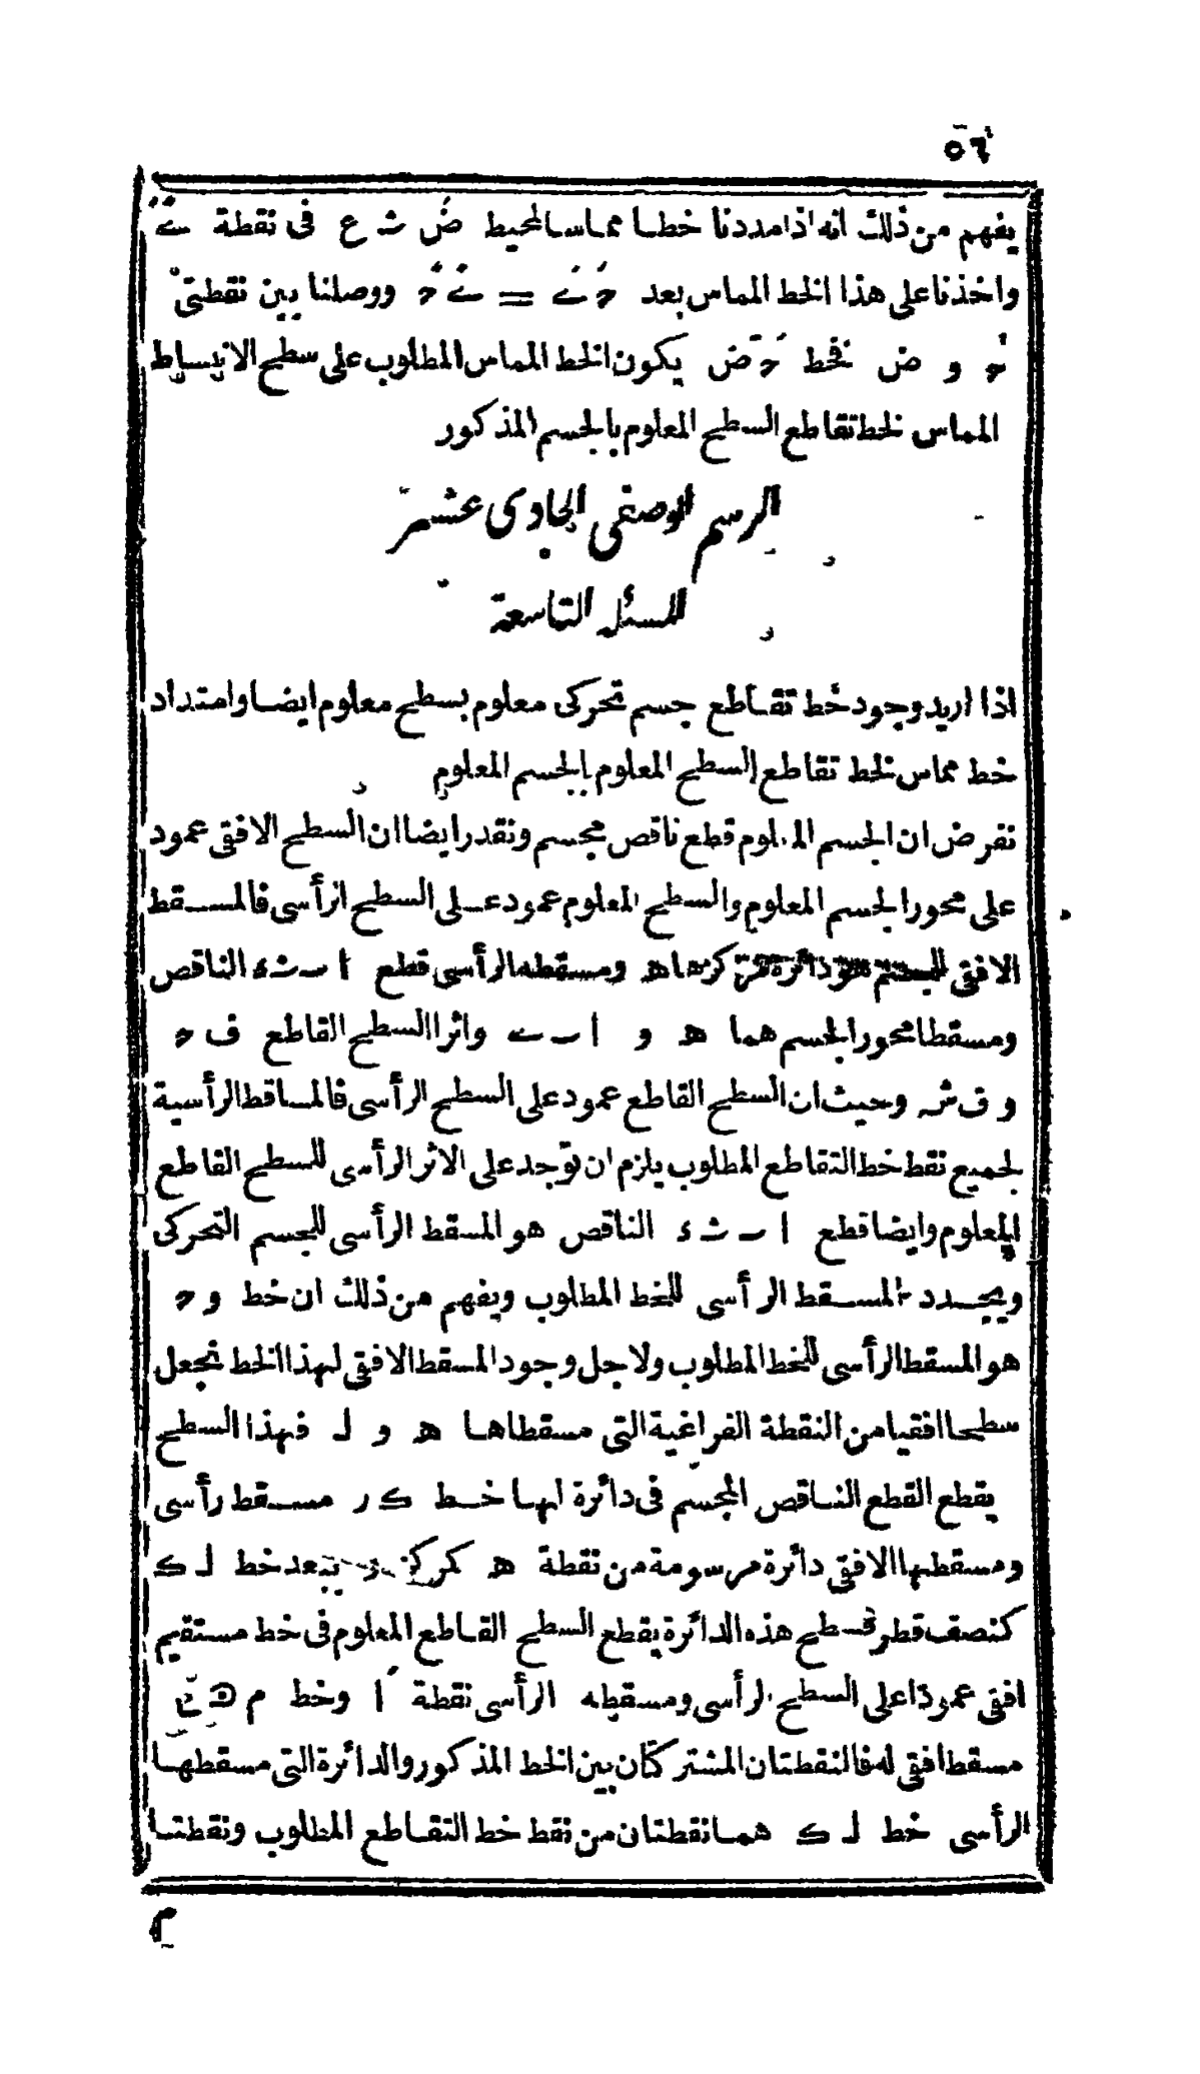 ٥٦
يفهم من ذلك انه اذا مددنا خطا مماسا لمحيط ض ث ع فى نقطة
واخذنا على هذا الخط المماس بعد = ووصلنا بين نقطتى
ح و ض فخط ح ض يكون الخط المماس المطلوب على سطح الانبساط
المماس لخط تقاطع السطح المعلوم بالجسم المذكور
الرسم الوصفى الحادى عشر
المسئلة التاسعة
اذا اريد وجود خط تقاطع جسم تحركى معلوم بسطح معلوم ايضا وامتداد
خط مماس لخط تقاطع السطح المعلوم بالجسم المعلوم
نفرض ان الجسم المعلوم قطع ناقص مجسم ونقدر ايضا ان السطح الافقى عمود
على محور الجسم المعلوم والسطح المعلوم عمود على السطح الرأسى فالمسقط
الافقى للمجسم هو دائرة مركزها ه ومسقطه الرأسى قطع ا ب ث ء الناقص
ومسقطا محور الجسم هما ه و ا ب واثرا السطح القاطع ف ح
و ف ش وحيث ان السطح القاطع عمود على السطح الرأسى فالمساقط الرأسية
لجميع نقط خط التقاطع المطلوب يلزم ان توجد على الاثر الرأسى للسطح القاطع
المعلوم وايضا قطع ا ب ث ء الناقص هو المسقط الرأسى للجسم التحركى
ويحدد المسقط الرأسى للخط المطلوب ويفهم من ذلك ان خط و ح
هو المسقط الرأسى للخط المطلوب ولاجل وجود المسقط الافقى لهذا الخط نجعل
سطحا افقيا من النقطة الفراغية التى مسقطاها ه و ل فهذا السطح
يقطع القطع الناقص المجسم فى دائرة لها خط ك ر مسقط رأسى
ومسقطها الافقى دائرة مرسومة من نقطة ه كمركز وببعد خط ل ك
كنصف قطر فسطح هذه الدائرة يقطع السطح القاطع المعلوم فى خط مستقيم
افقى عمودا على السطح الرأسى ومسقطه الرأسى نقطة ا وخط م ه ع
مسقط افقى له فالنقطتان المشتركتان بين الخط المذكور والدائرة التى مسقطها
الرأسى خط ل ك هما نقطتان من نقط خط التقاطع المطلوب ونقطتا
م